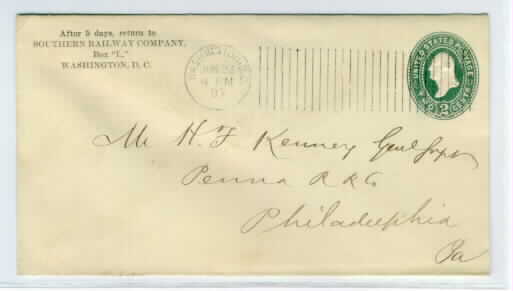 After 5 days, return to
SOUTHERN RAILWAY COMPANY,
Box "L."
WASHINGTON, D. C.
WASHINGTON, D.C.
4 PM
UNITED STATES POSTAGE
TWO 2 CENTS
Mr H. F. Kenney Genl Supt
Penna R R Co
Philadelphia
Pa